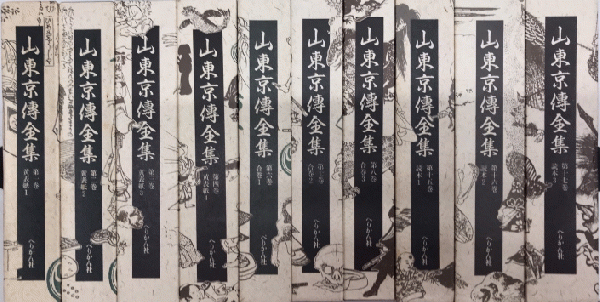 山東京傳全集
第一巻
黄表紙1
ぺりかん社
山東京傳全集
第二巻
黄表紙2
ぺりかん社
山東京傳全集
第三巻
黄表紙3
ぺりかん社
山東京傳全集
第四巻
黄表紙4
ぺりかん社
山東京傳全集
第六巻
合巻1
ぺりかん社
山東京傳全集
第七巻
合巻2
ぺりかん社
山東京傳全集
第八巻
合巻3
ぺりかん社
山東京傳全集
第十五巻
読本1
ぺりかん社
山東京傳全集
第十六巻
読本2
ぺりかん社
山東京傳全集
第十七巻
読本3
ぺりかん社